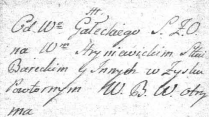 Od Wo Gałeckiego S. Z. O.
na Wm Hryniewickim
Bareckim y Innych w Zysku
Powtornym W. B. W. otrzy
ma